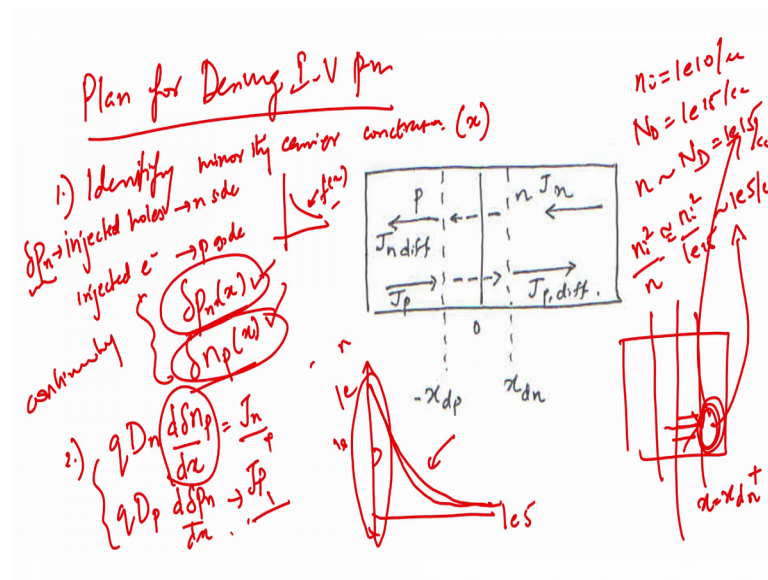 Plan for Deriving I-V pn
1.) Identify minority carrier concentration (x)
δPn → injected holes → n side
injected e⁻ → p side
f(x)
δPn(x) ✓
δnp(x) ✓
continuity
2.) qDn dδnp/dx = Jn
p
qDp dδpn/dx → Jp
P
n Jn
Jn diff
Jp
Jp,diff.
0
-xdp
xdn
1e5
ni = 1e10/cc
ND = 1e15/cc
n ~ ND = 1e15/cc
ni²/n ≅ ni²/1e15 ~ 1e5/c
x=xdn⁺